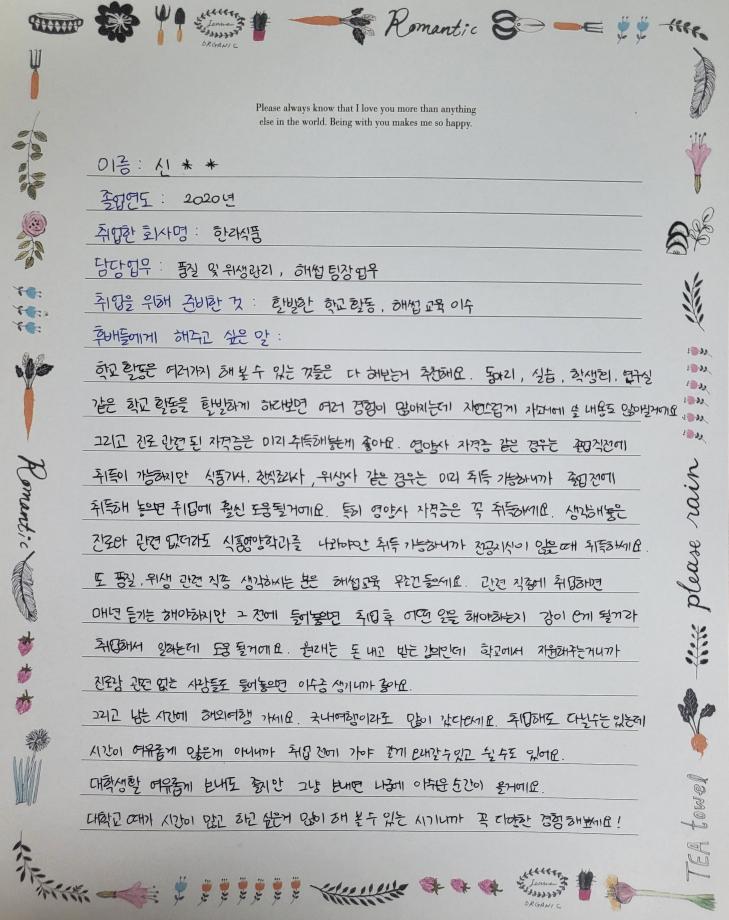 Romantic
Jenna
ORGANIC
Please always know that I love you more than anything
else in the world. Being with you makes me so happy.
이름 : 신 * *
졸업연도 : 2020년
취업한 회사명 : 한라식품
담당업무 : 품질 및 위생관리, 해썹 팀장 업무
취업을 위해 준비한 것 : 활발한 학교 활동, 해썹 교육 이수
후배들에게 해주고 싶은 말 :
학교 활동은 여러가지 해 볼 수 있는 것들은 다 해보는거 추천해요. 동아리, 실습, 학생회, 연구실
같은 학교 활동을 활발하게 하다보면 여러 경험이 많아지는데 자연스럽게 자소서에 쓸 내용도 많아질거예요
그리고 진로 관련 된 자격증은 미리 취득해놓는게 좋아요. 영양사 자격증 같은 경우는 졸업직전에
취득이 가능하지만 식품기사, 한식조리사, 위생사 같은 경우는 미리 취득 가능하니까 졸업 전에
취득해 놓으면 취업에 훨씬 도움될거예요. 특히 영양사 자격증은 꼭 취득하세요. 생각해놓은
진로와 관련 없더라도 식품영양학과를 나와야만 취득 가능하니까 전공지식이 있을때 취득하세요.
또 품질, 위생 관련 직종 생각하시는 분은 해썹교육 무조건 들으세요. 관련 직종에 취업하면
매년 듣기는 해야하지만 그 전에 들어놓으면 취업 후 어떤 일을 해야하는지 감이 오게 될거라
취업해서 일하는데 도움 될거예요. 원래는 돈 내고 받는 강의인데 학교에서 지원해주는거니까
진로랑 관련 없는 사람들도 들어놓으면 이수증 생기니까 좋아요.
그리고 남는 시간에 해외여행 가세요. 국내여행이라도 많이 갔다오세요. 취업해도 다닐수는 있는데
시간이 여유롭게 많은게 아니니까 취업 전에 가야 길게 오래갈수있고 쉴 수도 있어요.
대학생활 여유롭게 보내도 좋지만 그냥 보내면 나중에 아쉬운 순간이 올거예요.
대학교 때가 시간이 많고 하고 싶은거 많이 해 볼 수 있는 시기니까 꼭 다양한 경험 해보세요!
Romantic
please rain
TEA towel
Jenna
ORGANIC